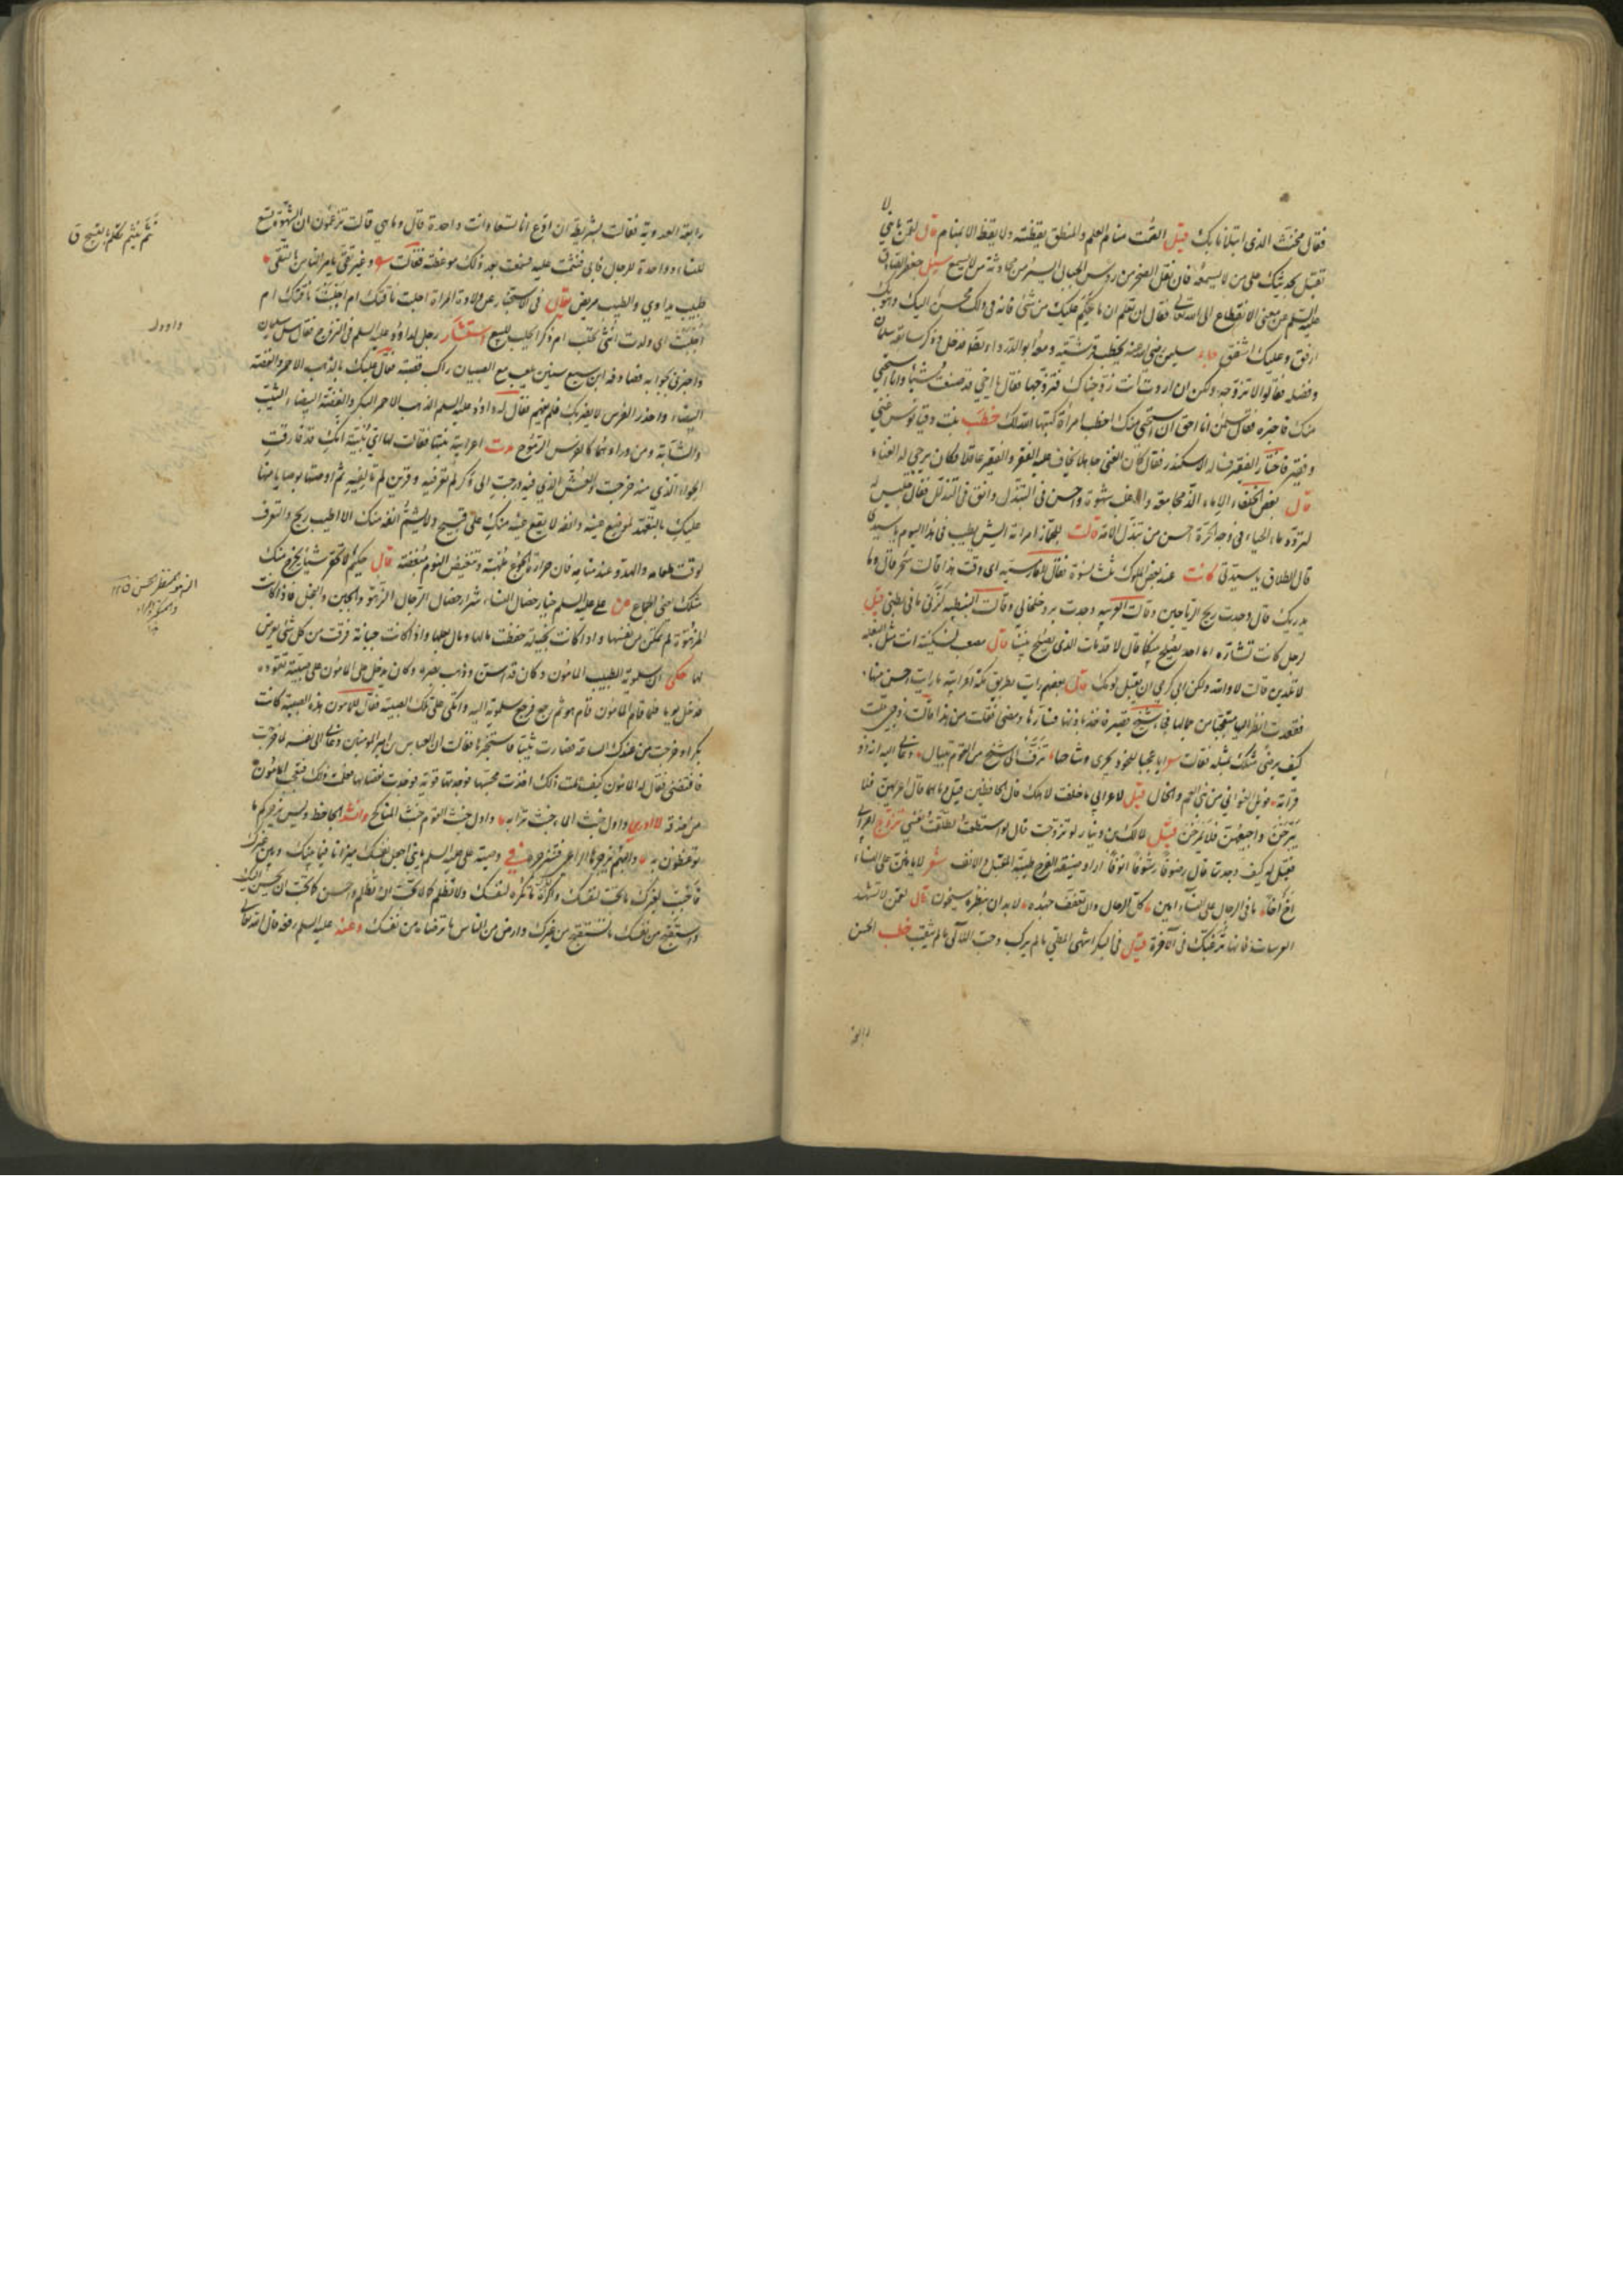 فقال مخنث الذى ابتلانا بك قيل الصمت منام العلم والمنطق يقظته ولا يقظة الا بمنام قال لقمن يا بني لا
تقبل بحديثك على من لا يسمعه فان نقل الصخر من رؤس الجبال ايسر من محادثة من لا يسمع سئل جعفر الصادق
عليه السلم عن معنى الانقطاع الى الله تعالى فقال ان تعلم ان ما حكم عليك من شئ فانه فى ذلك محسن اليك وهو بك
ارفق وعليك اشفق سلمن رضى الله عنه يخطب قرشية ومعه ابو الدرداء فدخل وذكر سابقة سلمان
وفضله فقالوا لا نزوجه ولكن ان اردت انت زوجناك فتزوجها فقال يا اخى قد صنعت شيئا وانا استحى
منك فاخبره فقال سلمن انا احق ان استحى منك اخطب امرأة كتبها الله لك خطب بنت دقيانوس غني
وفقير فاختار الفقير فسأله الاسكندر فقال كان الغنى جاهلا يخاف عليه الفقر والفقير عاقلا فكان يرجى له الغناء
قال بعض الخلفاء الاماء الذ مجامعة واغلب شهوة واحسن فى التبذل وانق فى التدلل فقال جليس له
لتردد ماء الحياء فى وجه الحرة احسن من تبذل الامة قالت للجماز امراته ايش يطيب فى هذا اليوم يا سيدى
قال الطلاق يا سيدتى كانت عند بعض الملوك ثلث نسوة فقال للفارسية اى وقت هذا قالت سحر قال وما
يدريك قال وجدت ريح الرياحين وقالت العربية وجدت برد خلخالى وقالت النبطية كربنى ما فى بطنى قيل
لرجل كانت تشاره اما احد يصلح بينكما قال لا قد مات الذى يصلح بيننا قال مصعب لسكينة انت مثل البغلة
لا تلدين قالت لا والله ولكن ابى كرمى ان يقبل لؤمك قال بعضهم رأيت بطريق مكة اعرابية ما رأيت احسن منها
فقعدت انظر اليها متعجبا من جمالها فجاء شيخ قصير فاخذ باذنها فسارها ومضى فقلت من هذا قالت زوجى قلت
كيف يرضى مثلك بمثله فقالت ايا عجبا للخود يجرى وشاحها تزف الى شيخ من القوم تنبال دعانى اليه انه ذو
قرابة فويل الغوانى من بنى العم والخال قيل لاعرابى ما خلفت لاهلك قال الحافظين قيل وما هما قال اعريهن فلا
يبرحن واجيعهن فلا يمرحن قيل لمالك بن دينار لو تزوجت قال لو استطعت لطلقت نفسى تزوج اعرابى
فقيل له كيف وجدتها قال رصوفا رشوفا انوفا اراد ضيقة الفرج طيبة المقبل والانف شعر لا يأمنن على النساء
اخ اخا ما فى الرجال على النساء امين كل الرجال وان تعفف جهده لا بد ان بنظرة سيخون قال لقمن لا تشهد
العرسات فانها ترغبك فى الآخرة قيل فى البكر اشهى المطى ما لم يركب وحب اللآلى ما لم يثقب خطب الحسن
رابعة
رابعة العدوية فقالت بشريطة ان ادع انا تسعا وانت واحدة قال وما هى قالت تزعمون ان الشهوة تسع
للنساء وواحدة للرجال فابى فختمت عليه فسمعت بعد ذلك موعظته فقالت وغير تقى يأمر الناس بالتقى
طبيب يداوى والطبيب مريض يقال فى الاستخبار عن ولادة المرأة احلبت ناقتك ام اجلبت ناقتك ام
اجلبت اى ولدت انثى تحلب ام ذكرا يجلب للبيع استشار رجل لداود عليه السلم فى التزوج فقال سل سليمن
واخبرنى بجوابه فصادفه ابن سبع سنين يلعب مع الصبيان راكب قصبة فقال عليك بالذهب الاحمر والفضة
البيضاء واحذر الفرس لا يضربك فلم يفهم فقال له داود عليه السلم الذهب الاحمر البكر والفضة البيضاء الثيب
والشابة ومن وراءهما كالفرس الجموح هدت اعرابية بنتها فقالت لها اى بنية انك قد فارقت
الجواء الذى منه خرجت والعش الذى فيه درجت الى وكر لم تعرفيه وقرين لم تألفيه ثم اوصتها بوصايا منها
عليك بالتعهد لموضع عينه وانفه لا يقع عينه منك على قبيح ولا يشم انفه منك الا اطيب ريح والتعرف
لوقت طعامه والهدو عند منامه فان حرارة الجوع ملهبة وتنغيص النوم مغضبة قال حكيم لا تحقر شيئا يخرج منك
مثلك يعنى الجماع عن على عليه السلم خيار خصال النساء شرار خصال الرجال الزهو والجبن والبخل فاذا كانت
المرأة مزهوة لم تمكن من نفسها واذا كانت بخيلة حفظت مالها ومال بعلها واذا كانت جبانة فرقت من كل شئ يعرض
لها حكى ان سلموية الطبيب المامون وكان قد اسن وذهب بصره وكان يدخل على المامون على صبية تقوده
فدخل يوما فلما قام المامون قام هو ثم رجع فرجع سلموية اليه واتكى على تلك الصبية فقال للمامون هذه الصبية كانت
بكرا وخرجت من عندك الساعة فصارت ثيبا فاستخبرها فقالت ان العباس بن امير المومنين دعانى الى نفسه
فافتضنى فقال له المامون كيف علمت ذلك اخذت مجستها فوجدتها قوية فوجدت نقصانها فعلمت ذلك فتعجب المامون
من حذقه لا ادرى واول خبث الماء خبث ترابه واول خبث القوم خبث المناكح وانشد الجاحظ وليس يزجركم ما
توعظون به والبهم يزجرها الراعى فتنزجر فى وصية على عليه السلم يا بنى اجعل نفسك ميزانا فيما بينك وبين غيرك
فاحبب لغيرك ما تحب لنفسك واكره له ما تكره لنفسك ولا تظلم كما لا تحب ان تظلم واحسن كما تحب ان يحسن اليك
واستقبح من نفسك ما تستقبح من غيرك وارض من الناس ما ترضاه من نفسك وعنه عليه السلم رفعه قال الله تعالى